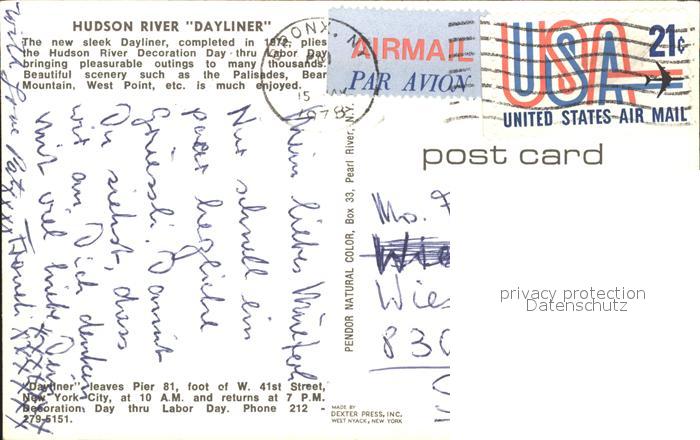 HUDSON RIVER "DAYLINER"
The new sleek Dayliner, completed in 1972, plies
the Hudson River Decoration Day thru Labor Day
bringing pleasurable outings to many thousands.
Beautiful scenery such as the Palisades, Bear
Mountain, West Point, etc. is much enjoyed.
BRONX, NY
15
1978
AIRMAIL
PAR AVION
USA 21¢
UNITED STATES AIR MAIL
post card
Mein liebes
Nur schnell ein
paar herzliche
Grüessli. Damit
Du siehst, dass
wir an Dich denken
mit viel Liebe Deine
With love Pat xxx
xxxxxxx
Ms.
Wies
830
PENDOR NATURAL COLOR, Box 33, Pearl River, NY.
privacy protection
Datenschutz
"Dayliner" leaves Pier 81, foot of W. 41st Street,
New York City, at 10 A.M. and returns at 7 P.M.
Decoration Day thru Labor Day. Phone 212 -
279-5151.
MADE BY
DEXTER PRESS, INC.
WEST NYACK, NEW YORK